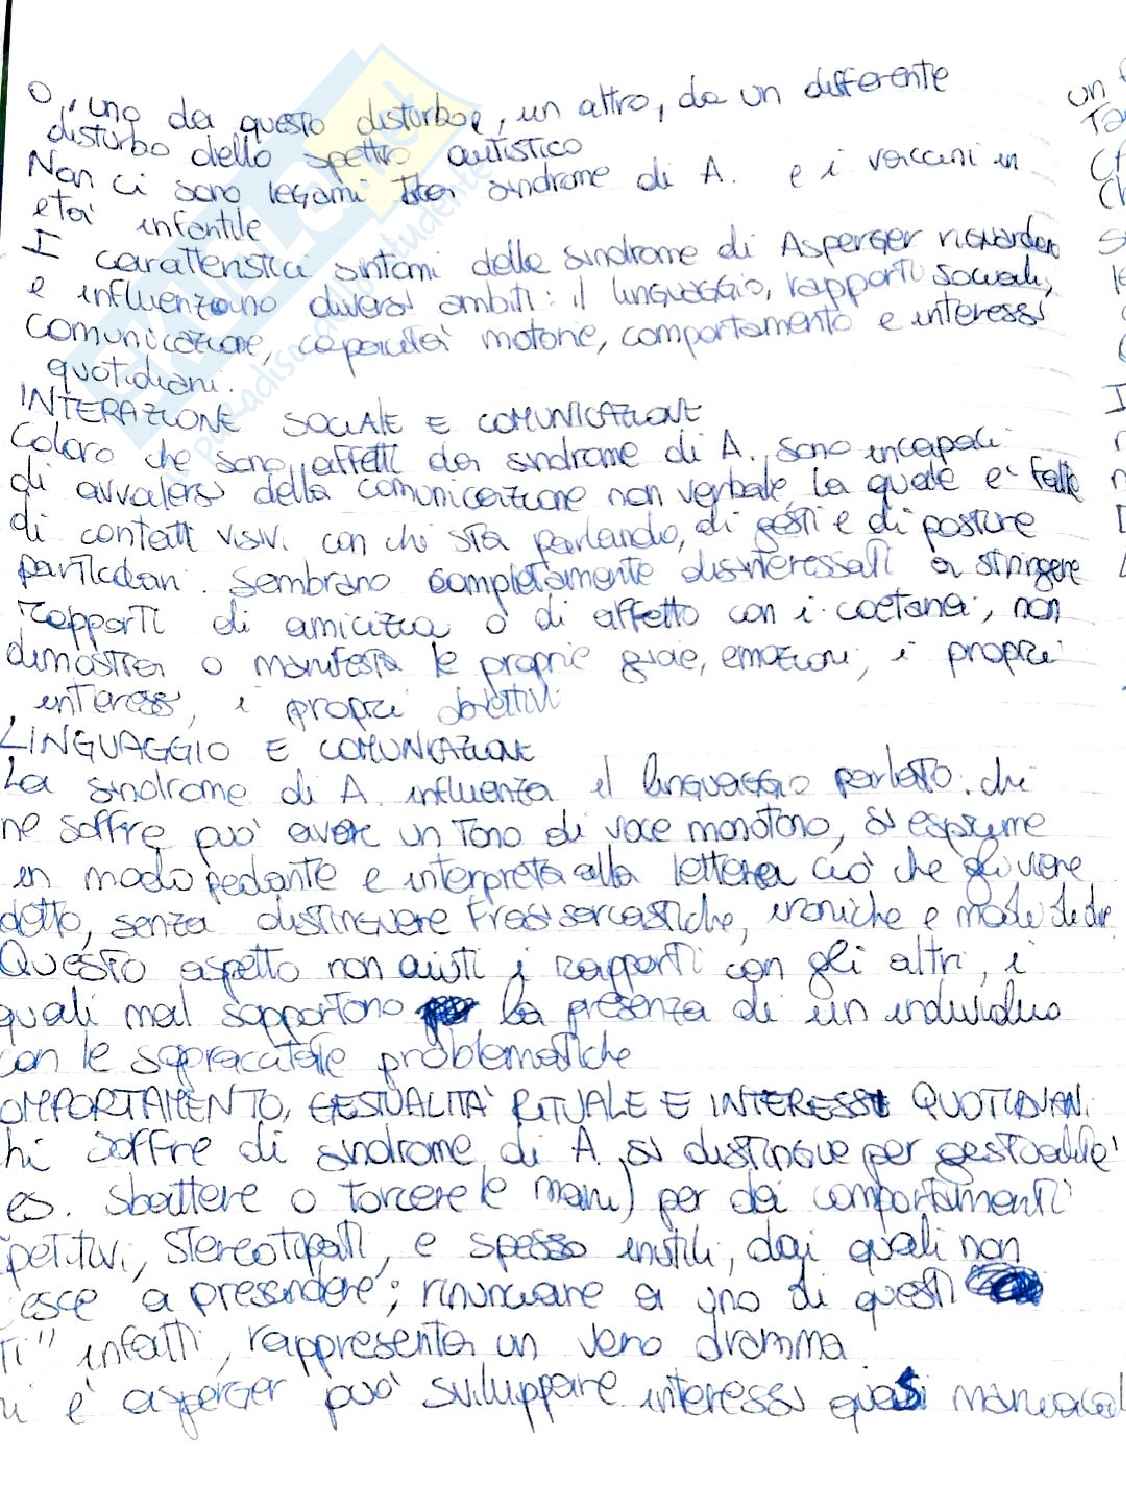 o, uno da questo disturboe, un altro, da un differente
disturbo dello spettro autistico
Non ci sono legami tra sindrome di A. e i vaccini in
età infantile
I caratteristici sintomi della sindrome di Asperger riguardano
e influenzano diversi ambiti: il linguaggio, rapporti sociali,
comunicazione, capacità motorie, comportamento e interessi
quotidiani.
INTERAZIONE SOCIALE E COMUNICAZIONE
Coloro che sono affetti da sindrome di A. sono incapaci
di avvalersi della comunicazione non verbale, la quale è fatta
di contatti visivi con chi sta parlando, di gesti e di posture
particolari. Sembrano completamente disinteressati a stringere
rapporti di amicizia o di affetto con i coetanei, non
dimostra o manifesta le proprie gioie, emozioni, i propri
interessi, i propri obiettivi
LINGUAGGIO E COMUNICAZIONE
La sindrome di A. influenza il linguaggio parlato: chi
ne soffre può avere un tono di voce monotono, si esprime
in modo pedante e interpreta alla lettera ciò che gli viene
detto, senza distinguere frasi sarcastiche, ironiche e modi di dire
Questo aspetto non aiuti i rapporti con gli altri, i
quali mal sopportono la presenza di un individuo
con le sopracitate problematiche
OMPORTAMENTO, GESTUALITA' RITUALE E INTERESSI QUOTIDIANI
hi soffre di sindrome di A. si distingue per gestualità
es. sbattere o torcere le mani) per dei comportamenti
petitivi, stereotipati, e spesso inutili, dai quali non
esce a prescindere; rinunciare a uno di questi
ti" infatti, rappresenta un vero dramma
i è asperger può sviluppare interessi quasi maniacal
un
I